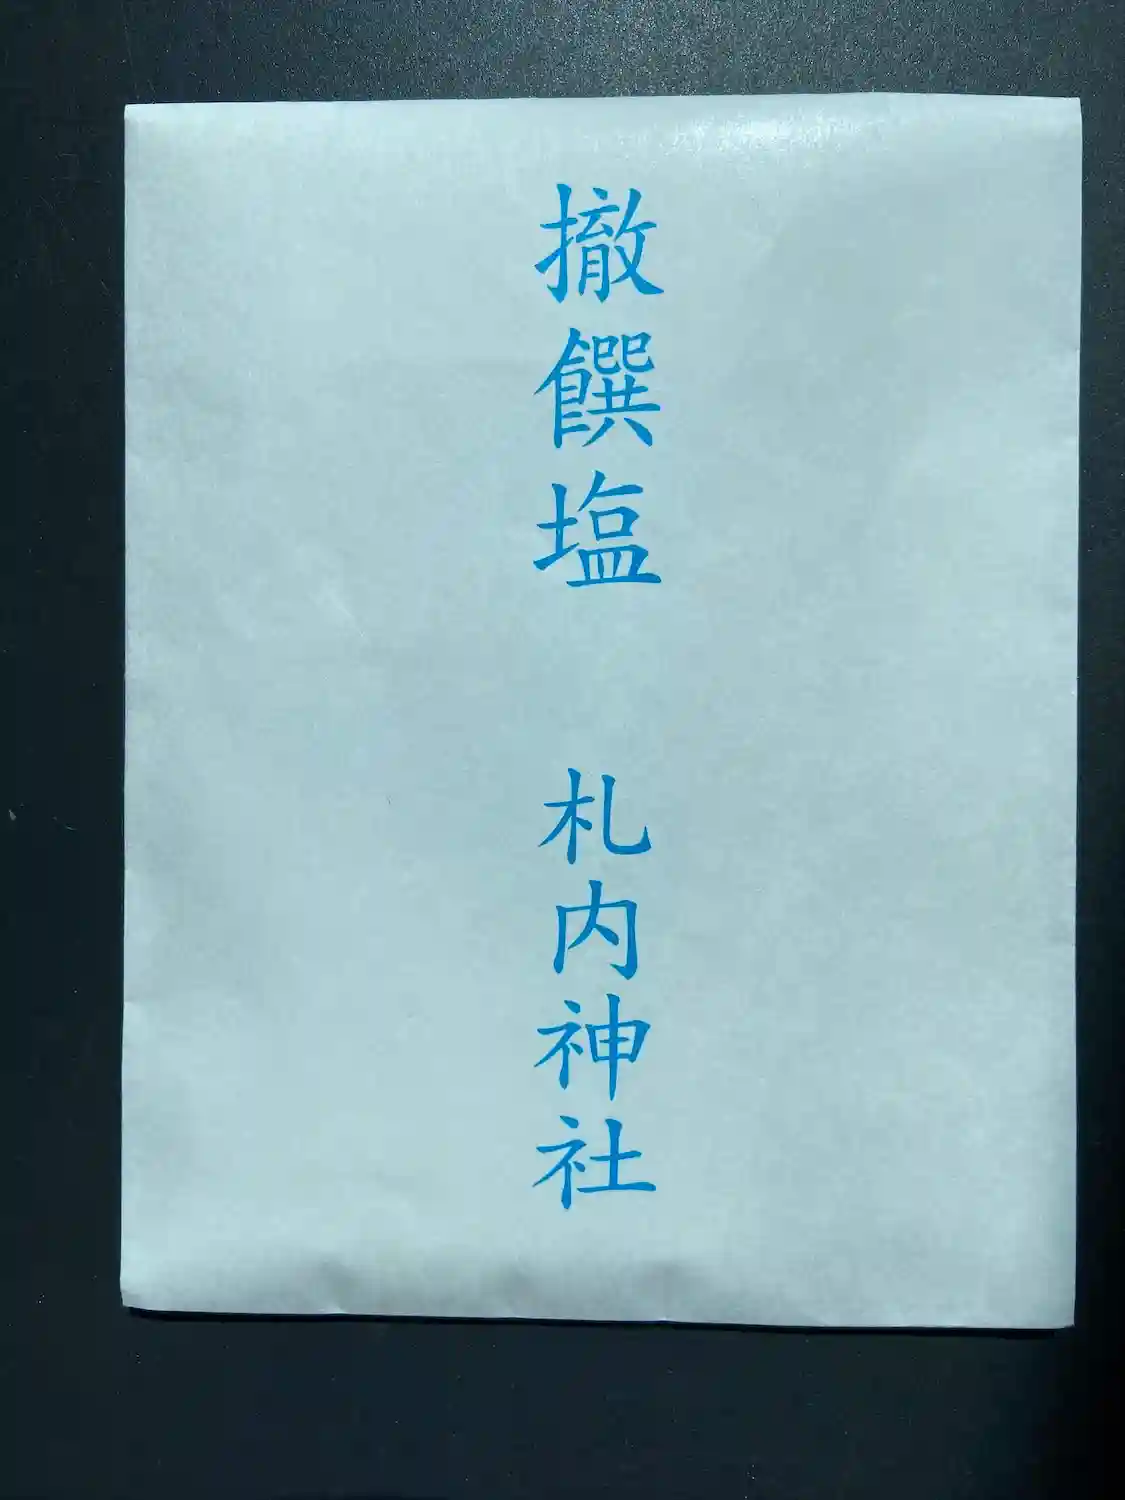 撤饌塩　札内神社